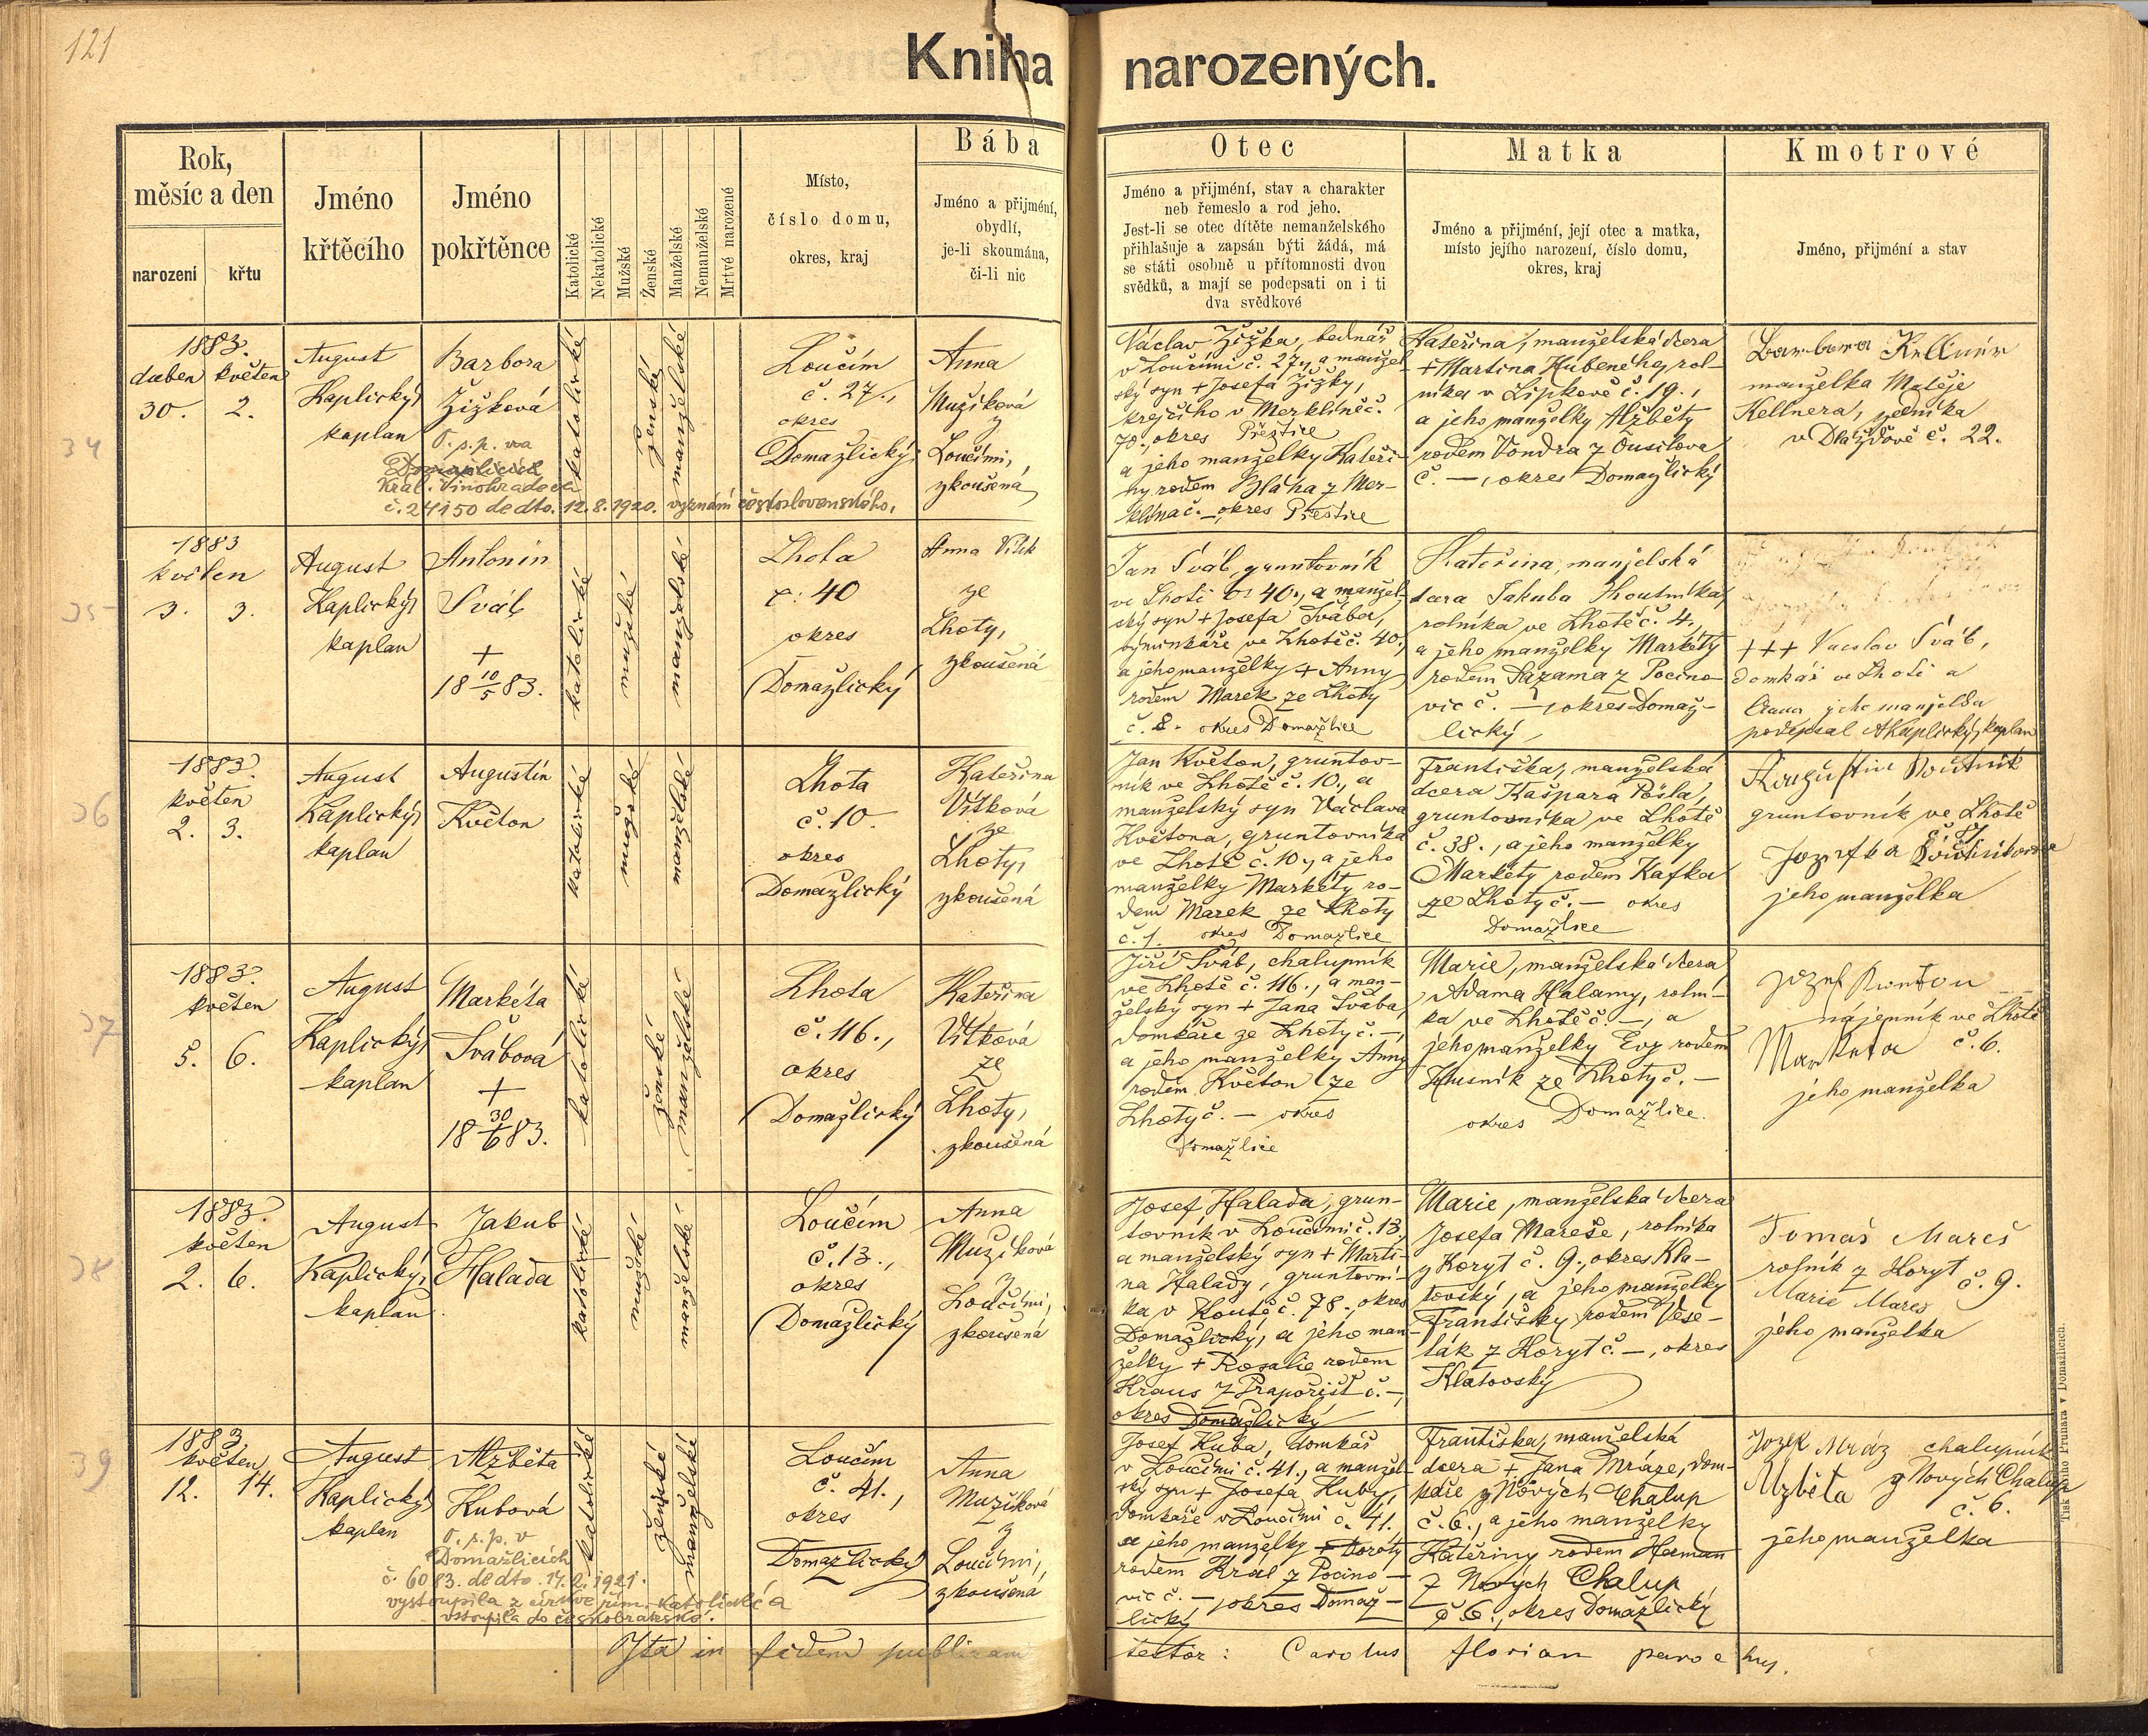 121
Kniha narozených.
Rok,
měsíc a den
narození
křtu
Jméno
křtěcího
Jméno
pokřtěnce
Katolické
Nekatolické
Mužské
Ženské
Manželské
Nemanželské
Mrtvé narozené
Místo,
číslo domu,
okres, kraj
Bába
Jméno a přijmení,
obydlí,
je-li skoumána,
či-li nic
Otec
Jméno a přijmení, stav a charakter
neb řemeslo a rod jeho.
Jest-li se otec dítěte nemanželského
přihlašuje a zapsán býti žádá, má
se státi osobně u přítomnosti dvou
svědků, a mají se podepsati on i ti
dva svědkové
Matka
Jméno a přijmení, její otec a matka,
místo jejího narození, číslo domu,
okres, kraj
Kmotrové
Jméno, přijmení a stav
34
1883.
duben květen
30. 2.
August
Kaplický,
kaplan
Barbora
Žižková
O. s. p. na
Domažlicích
Král. Vinohradech
č. 24150 de dto. 12.8.1920. vyznání československého.
katolické
ženské
manželské
Loučím
č. 27.,
okres
Domažlický,
Anna
Mužíková
z
Loučimi,
zkoušená
Václav Žižka, bednář
v Loučimi č. 27., a manžel-
ský syn + Josefa Žižky,
krejčího v Merklíně č.
70., okres Přeštice
a jeho manželky Kateři-
ny rodem Bláha z Mer-
klína č. —, okres Přeštice
Kateřina, manželská dcera
+ Martina Hubeného, rol-
níka v Lipkově č. 19.,
a jeho manželky Alžběty
rodem Vondra z Ousilova
č. —, okres Domažlický
Barbora Kellner
manželka Matěje
Kellnera, zedníka
v Dlažďově č. 22.
35
1883
květen
3. 3.
August
Kaplický,
kaplan
Antonín
Šváb
+
18 10/5 83.
katolické
mužské
manželské
Lhota
č. 40
okres
Domažlický
Anna Vítk
ze
Lhoty,
zkoušená
Jan Šváb, gruntovník
ve Lhotě č. 40., a manžel-
ský syn + Josefa Švába,
výminkáře ve Lhotě č. 40.,
a jeho manželky + Anny
rodem Marek ze Lhoty
č. 8. okres Domažlice
Kateřina, manželská
dcera Jakuba Koutníka,
rolníka ve Lhotě č. 4.,
a jeho manželky Markéty
rodem Sazama z Pocino-
vic č. —, okres Domaž-
lický,
+++ Vaclav Šváb,
domkář ve Lhotě a
Anna jeho manželka
podepsal AKaplický, kaplan
36
1883.
květen
2. 3.
August
Kaplický,
kaplan
Augustin
Květon
katolické
mužské
manželské
Lhota
č. 10.
okres
Domažlický
Kateřina
Vítková
ze
Lhoty,
zkoušená
Jan Květon, gruntov-
ník ve Lhotě č. 10., a
manželský syn Václava
Květona, gruntovníka
ve Lhotě č. 10., a jeho
manželky Markéty ro-
dem Marek ze Lhoty
č. 1. okres Domažlice
Františka, manželská
dcera Kašpara Pošla,
gruntovníka ve Lhotě
č. 38., a jeho manželky
Markéty rodem Kafka
ze Lhoty č. — okres
Domažlice
Augustin Koutník
gruntovník ve Lhotě
Jozefka Koutníková
jeho manželka
37
1883.
květen
5. 6.
August
Kaplický,
kaplan
Markéta
Švábová
+
18 30/6 83.
katolické
ženské
manželské
Lhota
č. 116.,
okres
Domažlický
Kateřina
Vítková
ze
Lhoty,
zkoušená
Jiří Šváb, chalupník
ve Lhotě č. 116., a man-
želský syn + Jana Švába,
domkáře ze Lhoty č. —,
a jeho manželky Anny
rodem Květon ze
Lhoty č. — okres
Domažlice
Marie, manželská dcera
Adama Halamy, rolní-
ka ve Lhotě č. —, a
jeho manželky Evy rodem
Husník ze Lhoty č. —
okres Domažlice.
Jozef
nájemník ve Lhotě
Markéta č. 6.
jeho manželka
38
1883.
květen
2. 6.
August
Kaplický,
kaplan
Jakub
Halada
katolické
mužské
manželské
Loučím
č. 13.,
okres
Domažlický
Anna
Mužíková
z
Loučimi,
zkoušená
Josef Halada, grun-
tovník v Loučimi č. 13.,
a manželský syn + Marti-
na Halady, gruntovní-
ka v Koutě č. 78., okres
Domažlický, a jeho man-
želky + Rosalie rodem
Kraus z Prapořišť č. —,
okres Domažlický
Marie, manželská dcera
Josefa Mareše, rolníka
z Koryt č. 9., okres Kla-
tovský, a jeho manželky
Františky rodem Vese-
lák z Koryt č. —, okres
Klatovský
Tomáš Mareš
rolník z Koryt
č. 9.
Marie Mareš
jeho manželka
39
1883
květen
12. 14.
August
Kaplický,
kaplan
Alžběta
Kubová
O. s. p. v
Domažlicích
č. 6083. de dto. 14.2.1921.
vystoupila z církve řím. katolické a
vstoupila do českobratrské.
katolické
ženské
manželské
Loučím
č. 41.,
okres
Domažlický
Anna
Mužíková
z
Loučimi,
zkoušená
Josef Kuba, domkář
v Loučimi č. 41., a manžel-
ský syn + Josefa Kuby,
domkáře v Loučimi č. 41.
a jeho manželky + Doroty
rodem Král z Pocino-
vic č. —, okres Domaž-
lický
Františka, manželská
dcera + Jana Mráze, dom-
káře z Nových Chalup
č. 6., a jeho manželky
Kateřiny rodem Herman
z Nových Chalup
č. 6., okres Domažlický
Jozef Mráz chalupník
Alžběta z Nových Chalup
č. 6.
jeho manželka
Ita in fidem publicam
testor: Carolus Florian parochus.
Tisk a Prunara v Domažlicích.